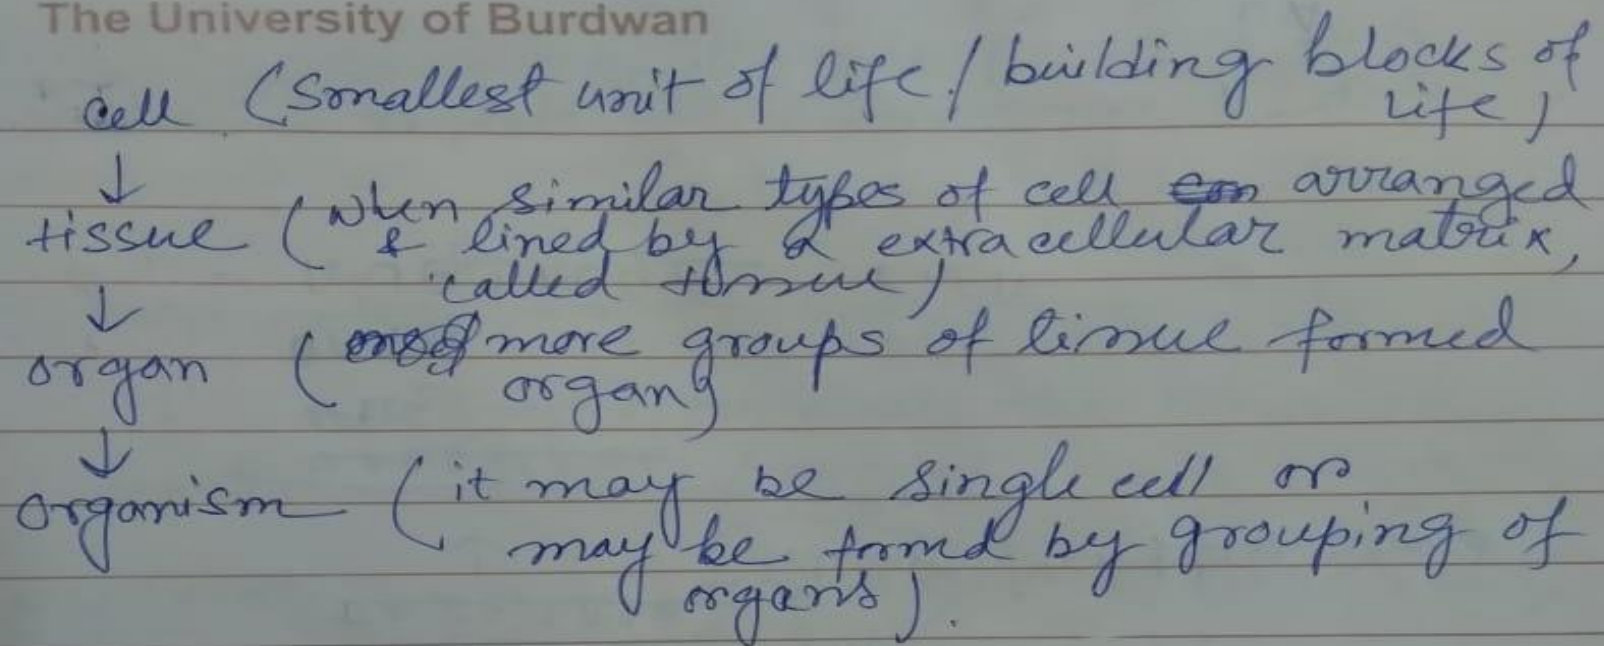 The University of Burdwan
cell (Smallest unit of life / building blocks of
Life)
↓
tissue (when similar types of cell arranged
& lined by a extracellular matrix,
called tissue)
↓
organ (more groups of tissue formed
organ)
↓
organism (it may be single cell or
may be formd by grouping of
organs).